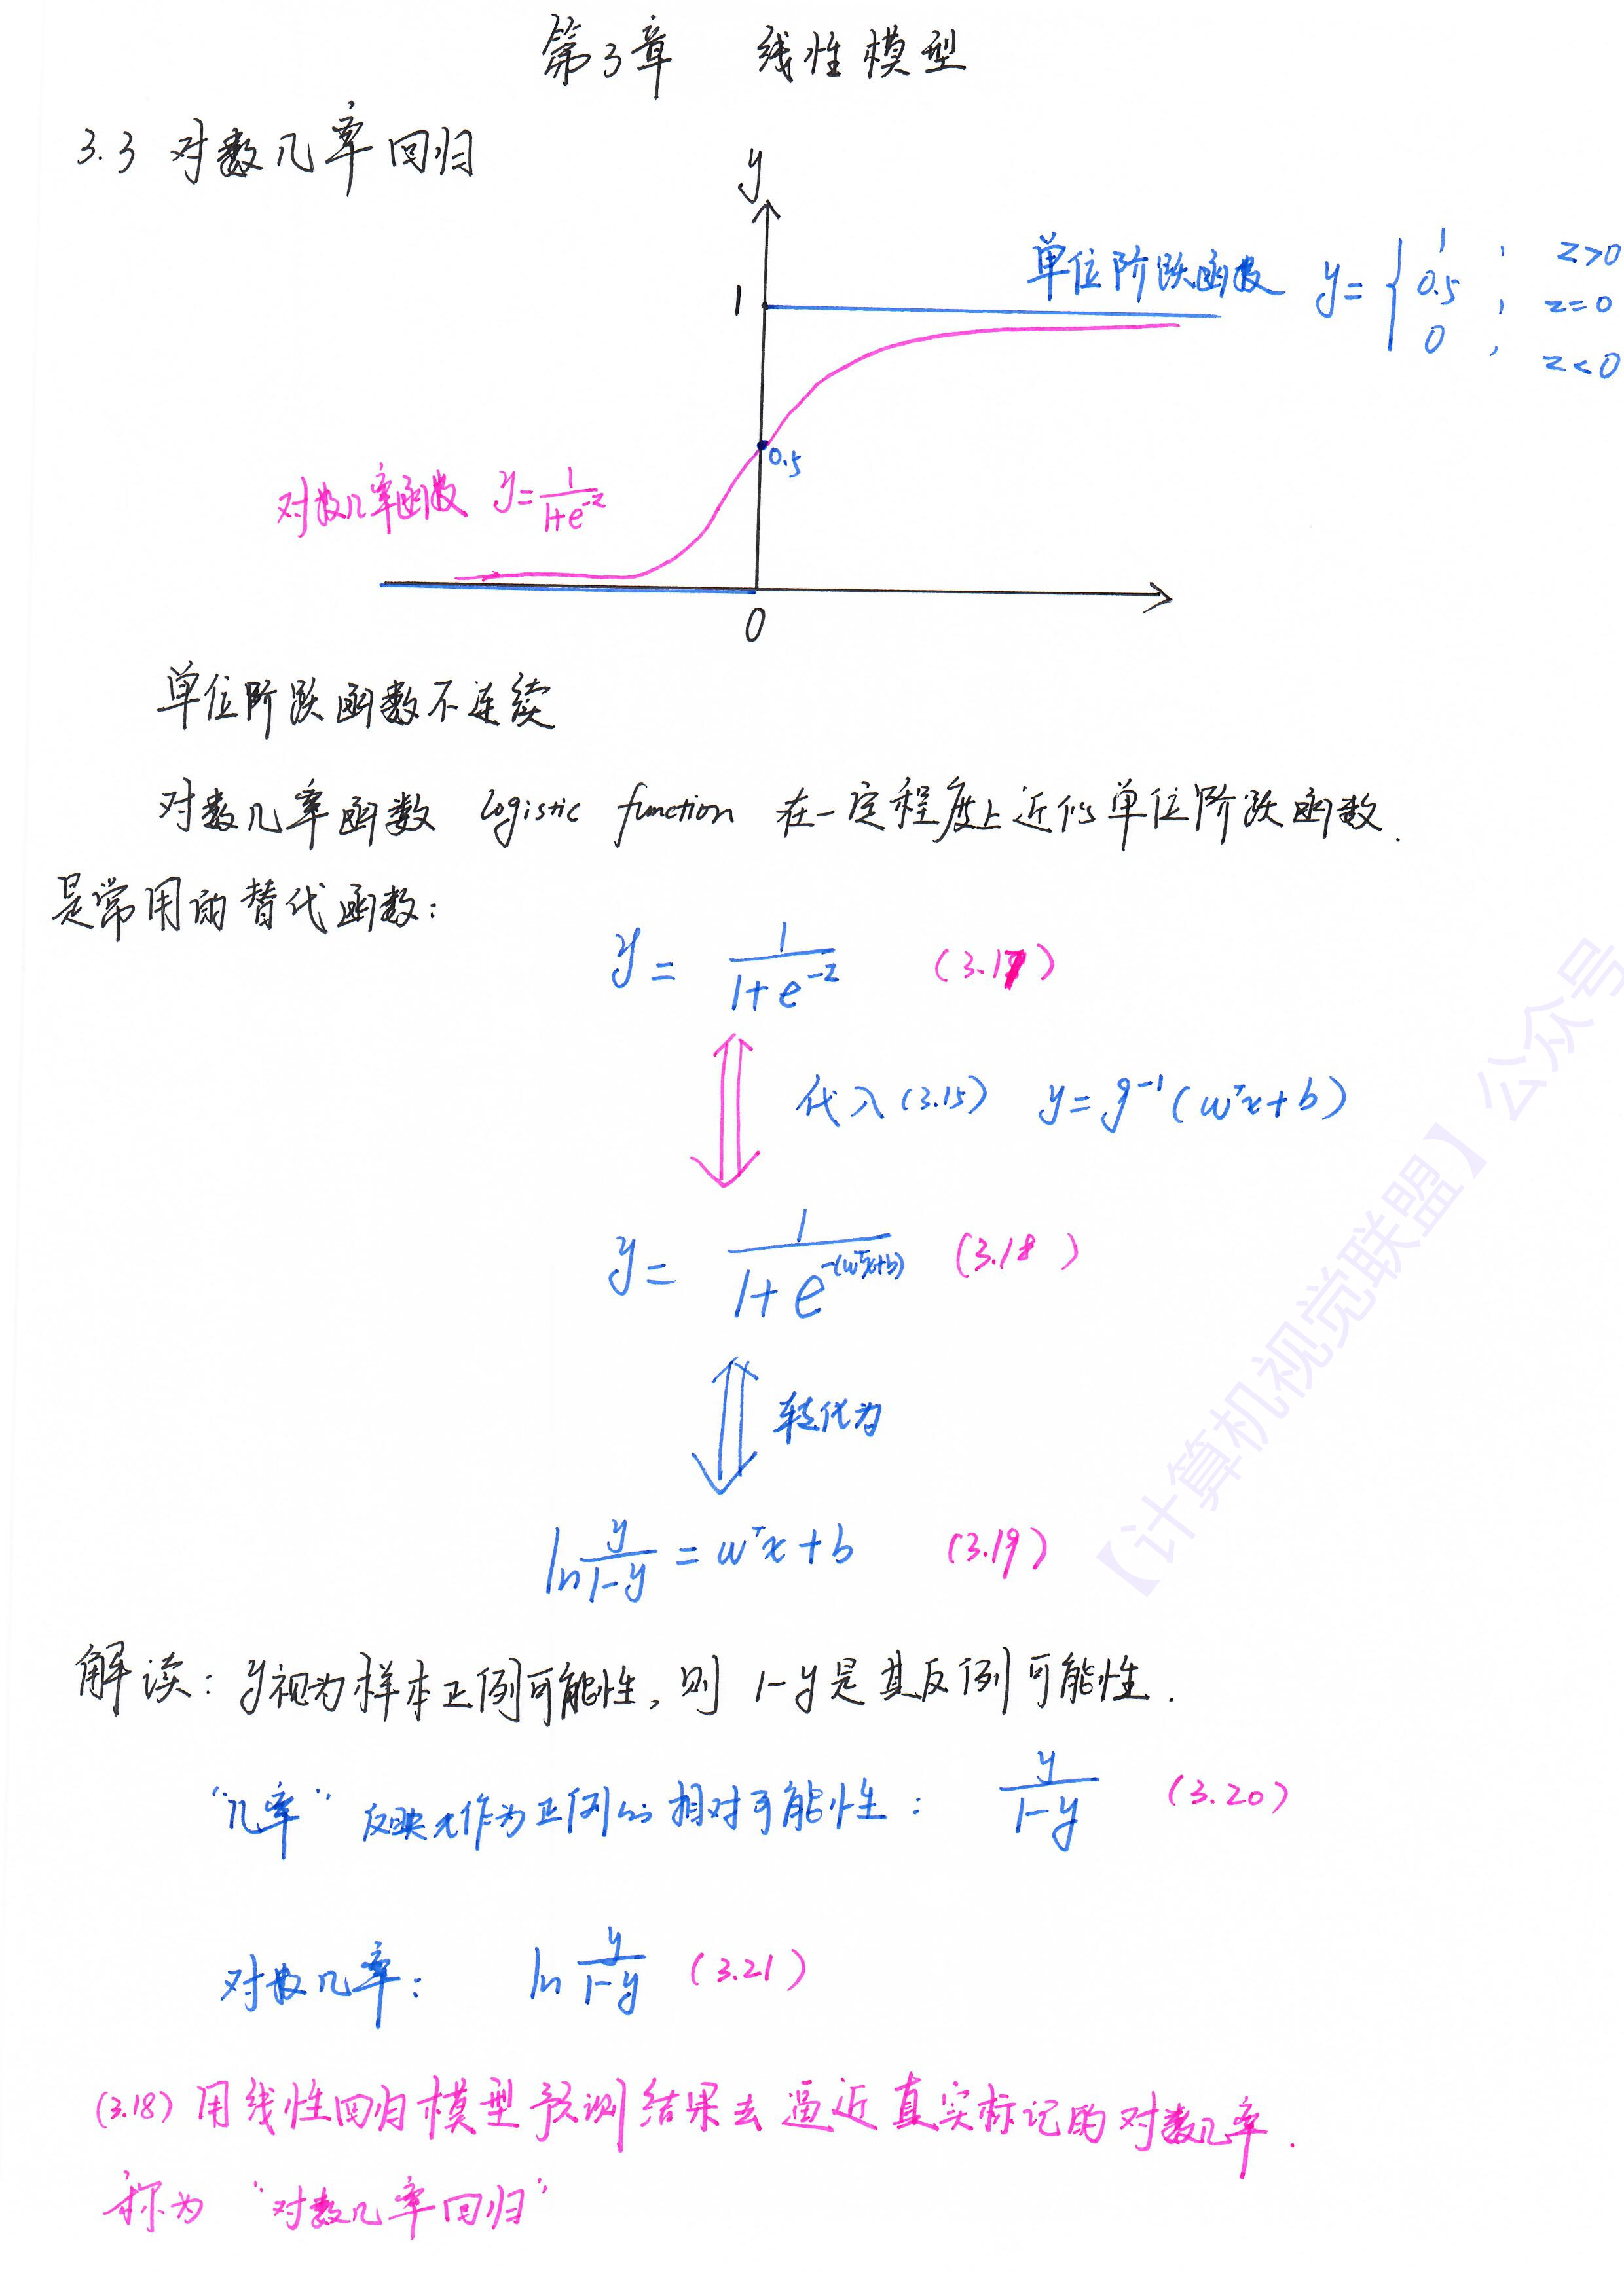 第3章 线性模型
3.3 对数几率回归
y
单位阶跃函数 y= { 1 , z>0
0.5 , z=0
0 , z<0
1
0.5
对数几率函数 y=1/(1+e^-z)
0
单位阶跃函数不连续
对数几率函数 logistic function 在一定程度上近似单位阶跃函数.
是常用的替代函数:
y = 1/(1+e^-z) (3.17)
代入(3.15) y=g^-1(w^T x+b)
y = 1/(1+e^-(w^T x+b)) (3.18)
转化为
ln y/(1-y) = w^T x+b (3.19)
解读: y视为样本正例可能性, 则 1-y是其反例可能性.
“几率” 反映x作为正例的相对可能性: y/(1-y) (3.20)
对数几率: ln y/(1-y) (3.21)
(3.18) 用线性回归模型预测结果去逼近真实标记的对数几率.
称为 “对数几率回归”
【计算机视觉联盟】公众号